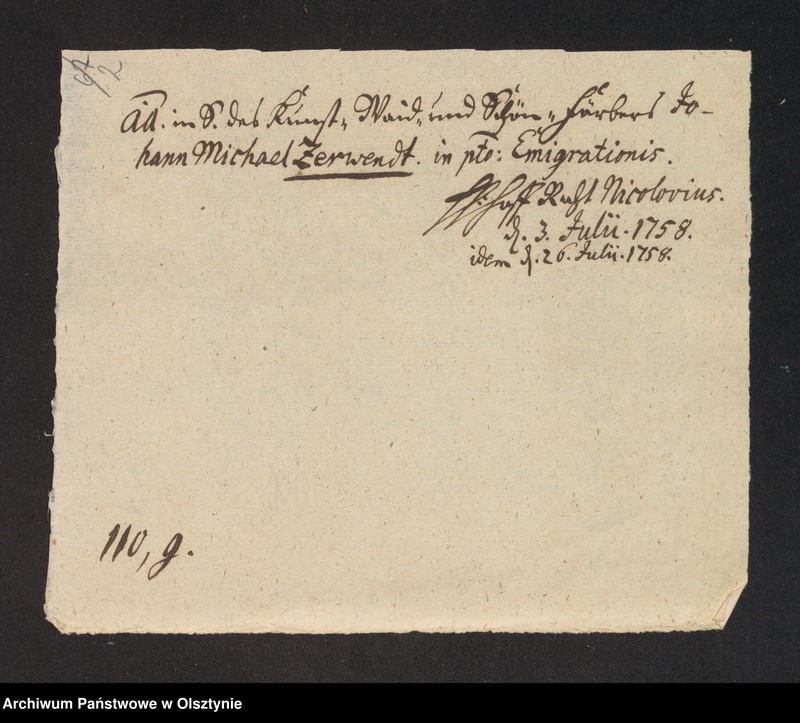 92
ad. in S. des Kunst- Waid- und Schön- Färbers Jo-
hann Michael Zerwendt. in pto: Emigrationis.
H: Hoff Raht Nicolovius.
d. 3. Julii. 1758.
idem d. 26. Julii. 1758.
110, g.
Archiwum Państwowe w Olsztynie